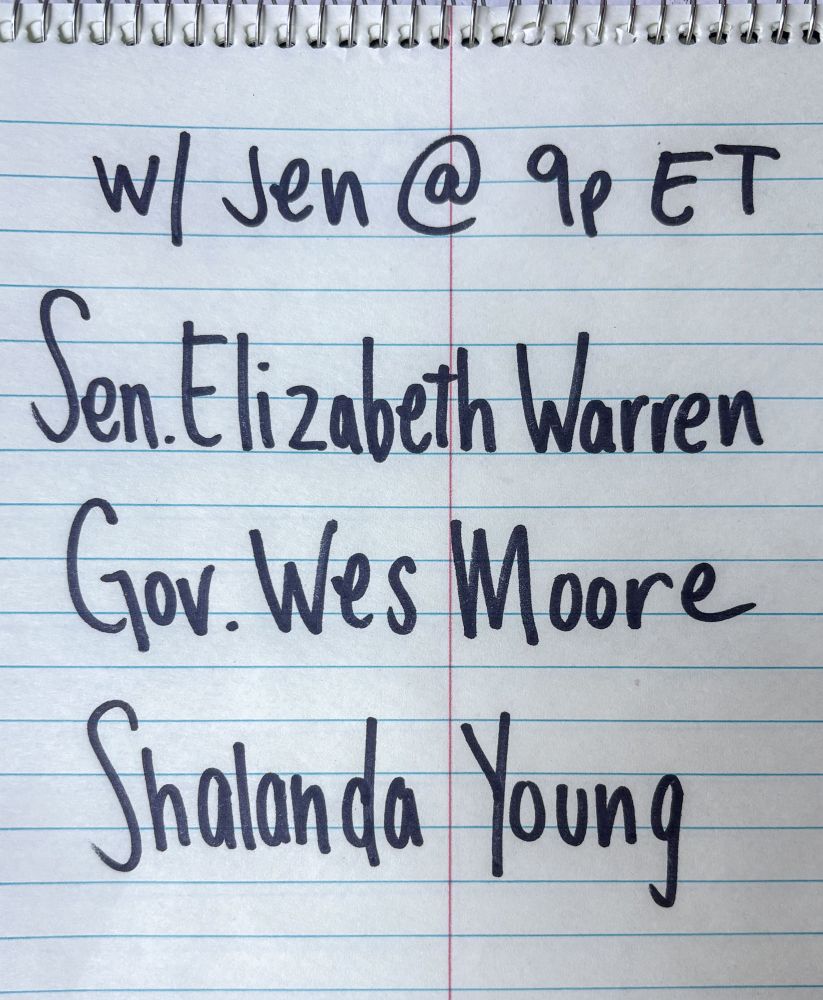 w/ Jen @ 9p ET
Sen. Elizabeth Warren
Gov. Wes Moore
Shalanda Young